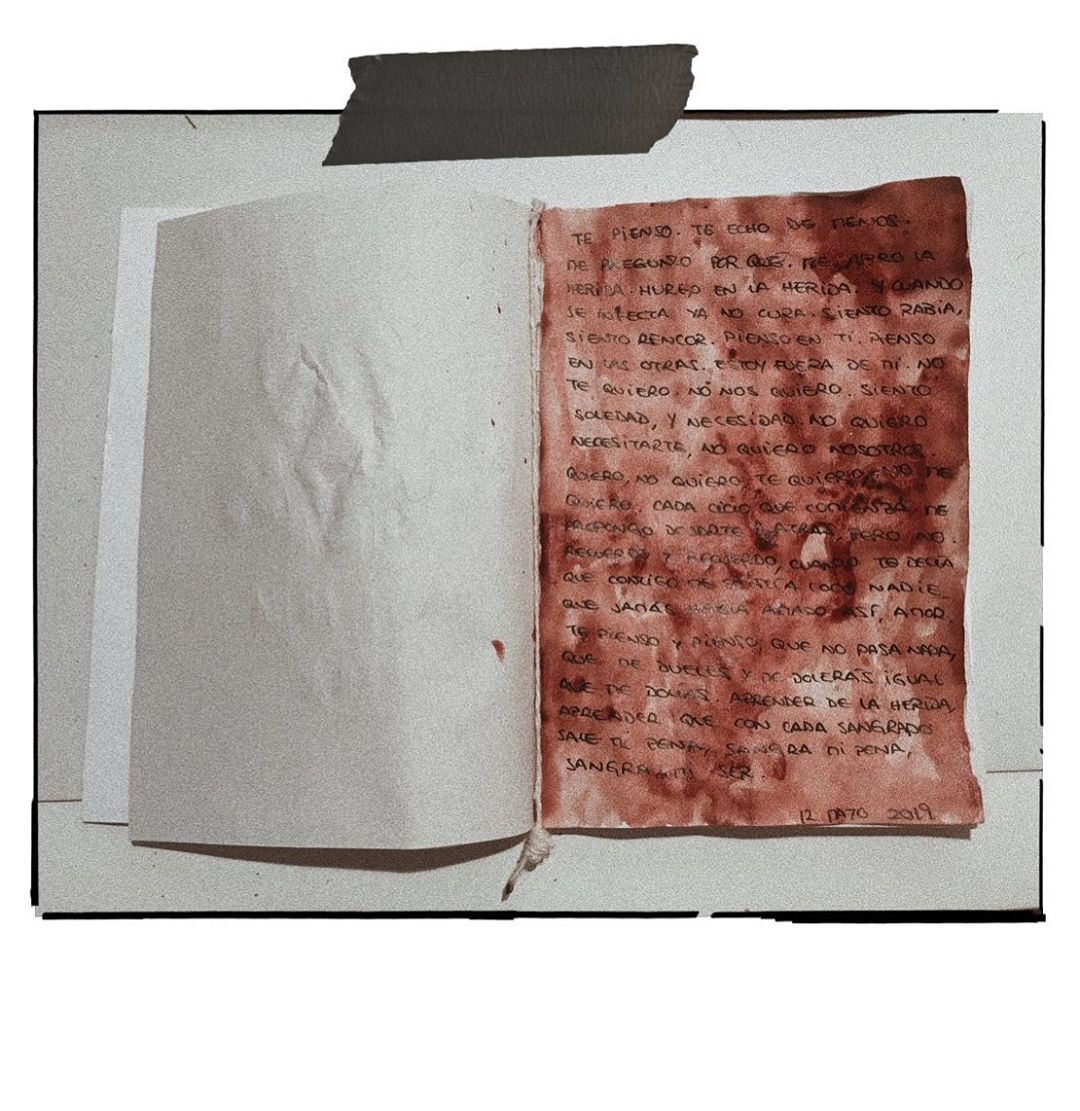 TE PIENSO. TE ECHO DE MENOS.
ME PREGUNTO POR QUÉ. ME ABRO LA
HERIDA. HURGO EN LA HERIDA. Y CUANDO
SE INFECTA YA NO CURA. SIENTO RABIA,
SIENTO RENCOR. PIENSO EN TI. PIENSO
EN LAS OTRAS. ESTOY FUERA DE MI. NO
TE QUIERO. NO NOS QUIERO. SIENTO
SOLEDAD, Y NECESIDAD. NO QUIERO
NECESITARTE, NO QUIERO NOSOTROS.
QUIERO, NO QUIERO, TE QUIERO, NO ME
QUIERO. CADA CICLO QUE COMIENZA ME
PROPONGO DEJARTE ATRÁS, PERO NO.
RECUERDO Y RECUERDO, CUANDO TE DECÍA
QUE CONTIGO ME SENTÍA COMO NADIE.
QUE JAMÁS HABÍA AMADO ASÍ, AMOR.
TE PIENSO Y PIENSO, QUE NO PASA NADA,
QUE ME DUELES Y ME DOLERÁS IGUAL
QUE ME DOLÍAS. APRENDER DE LA HERIDA,
APRENDER QUE CON CADA SANGRADO
SALE MI PENA, SANGRA MI PENA,
SANGRA MI SER.
12 MAYO 2019